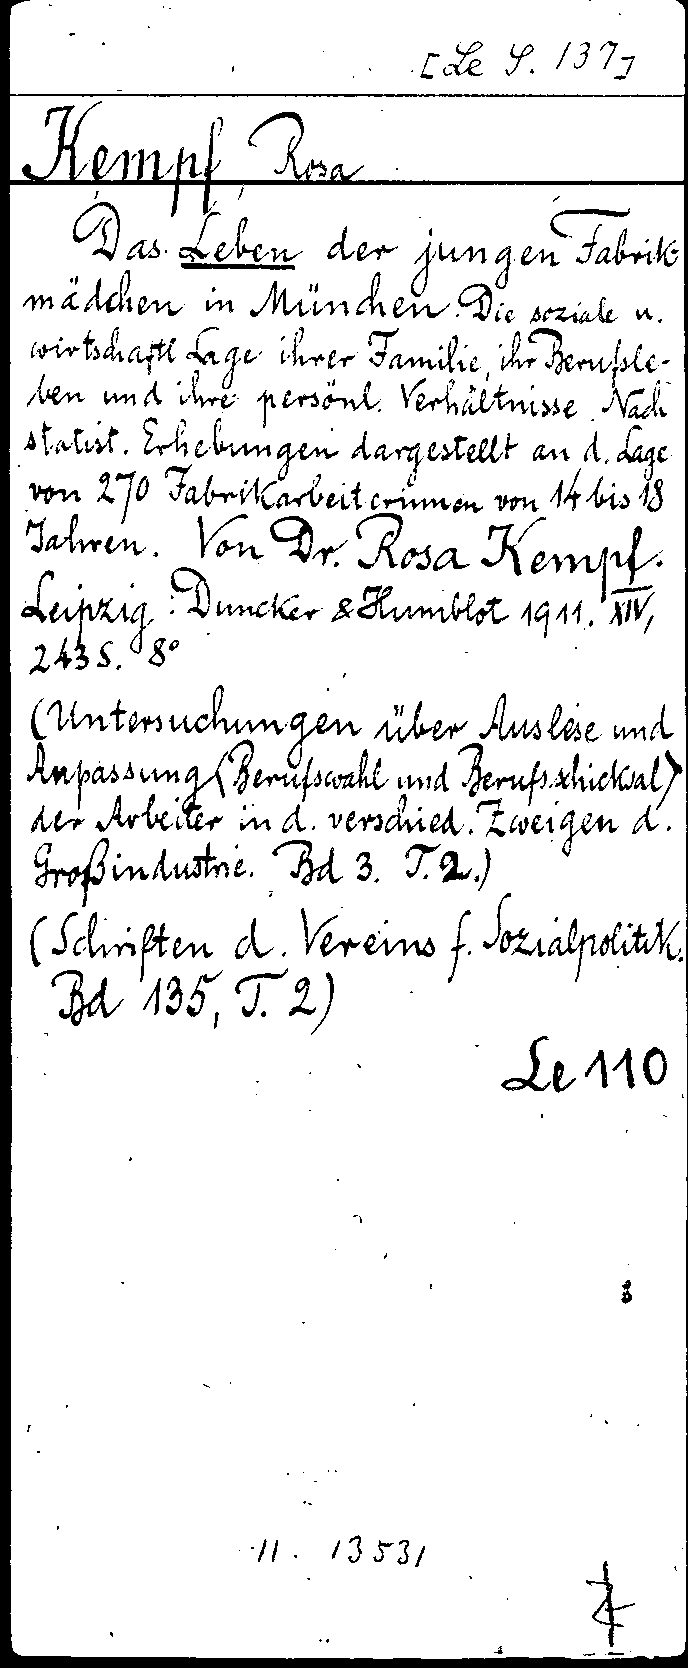 [Le S. 137]
Kempf, Rosa
Das Leben der jungen Fabrik-
mädchen in München. Die soziale u.
wirtschaftl Lage ihrer Familie, ihr Berufsle-
ben und ihre persönl. Verhältnisse. Nach
statist. Erhebungen dargestellt an d. Lage
von 270 Fabrikarbeiterinnen von 14 bis 18
Jahren. Von Dr. Rosa Kempf.
Leipzig: Duncker & Humblot 1911. XIV,
243 S. 8°
(Untersuchungen über Auslese und
Anpassung (Berufswahl und Berufsschicksal)
der Arbeiter in d. verschied. Zweigen d.
Großindustrie. Bd 3. T. 2.)
(Schriften d. Vereins f. Sozialpolitik.
Bd 135, T. 2)
Le 110
11. 13531